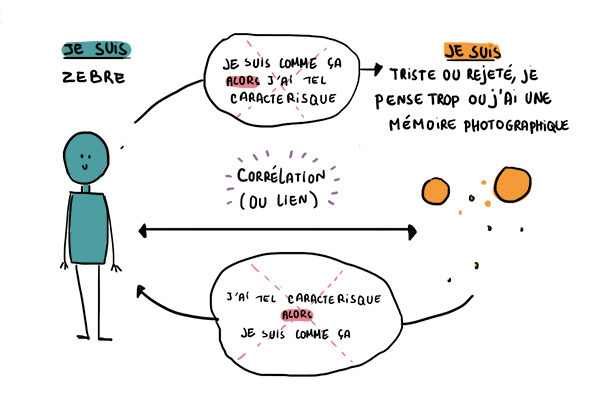 JE SUIS
ZEBRE
JE SUIS COMME ÇA
ALORS J'AI TEL
CARACTERISQUE
JE SUIS
TRISTE OU REJETÉ, JE
PENSE TROP OU J'AI UNE
MÉMOIRE PHOTOGRAPHIQUE
CORRÉLATION
(OU LIEN)
J'AI TEL CARACTERISQUE
ALORS
JE SUIS COMME ÇA